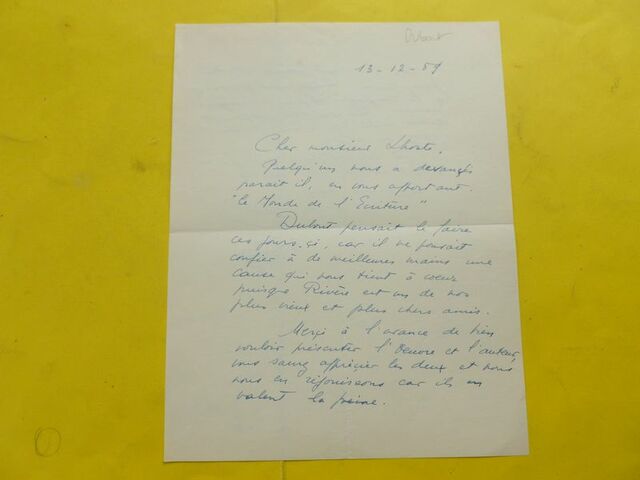 Dubout
13-12-59
Cher monsieur Lhoste,
Quelqu'un nous a devancés
paraît il, en vous apportant
"Le Monde de l'Ecriture"
Dubout pensait le faire
ces jours-ci, car il ne pouvait
confier à de meilleures mains une
cause qui nous tient à cœur
puisque Rivère est un de nos
plus vieux et plus chers amis.
Merçi à l'avance de bien
vouloir présenter l'œuvre et l'auteur,
vous saurez apprécier les deux et nous
nous en réjouissons car ils en
valent la peine.
1